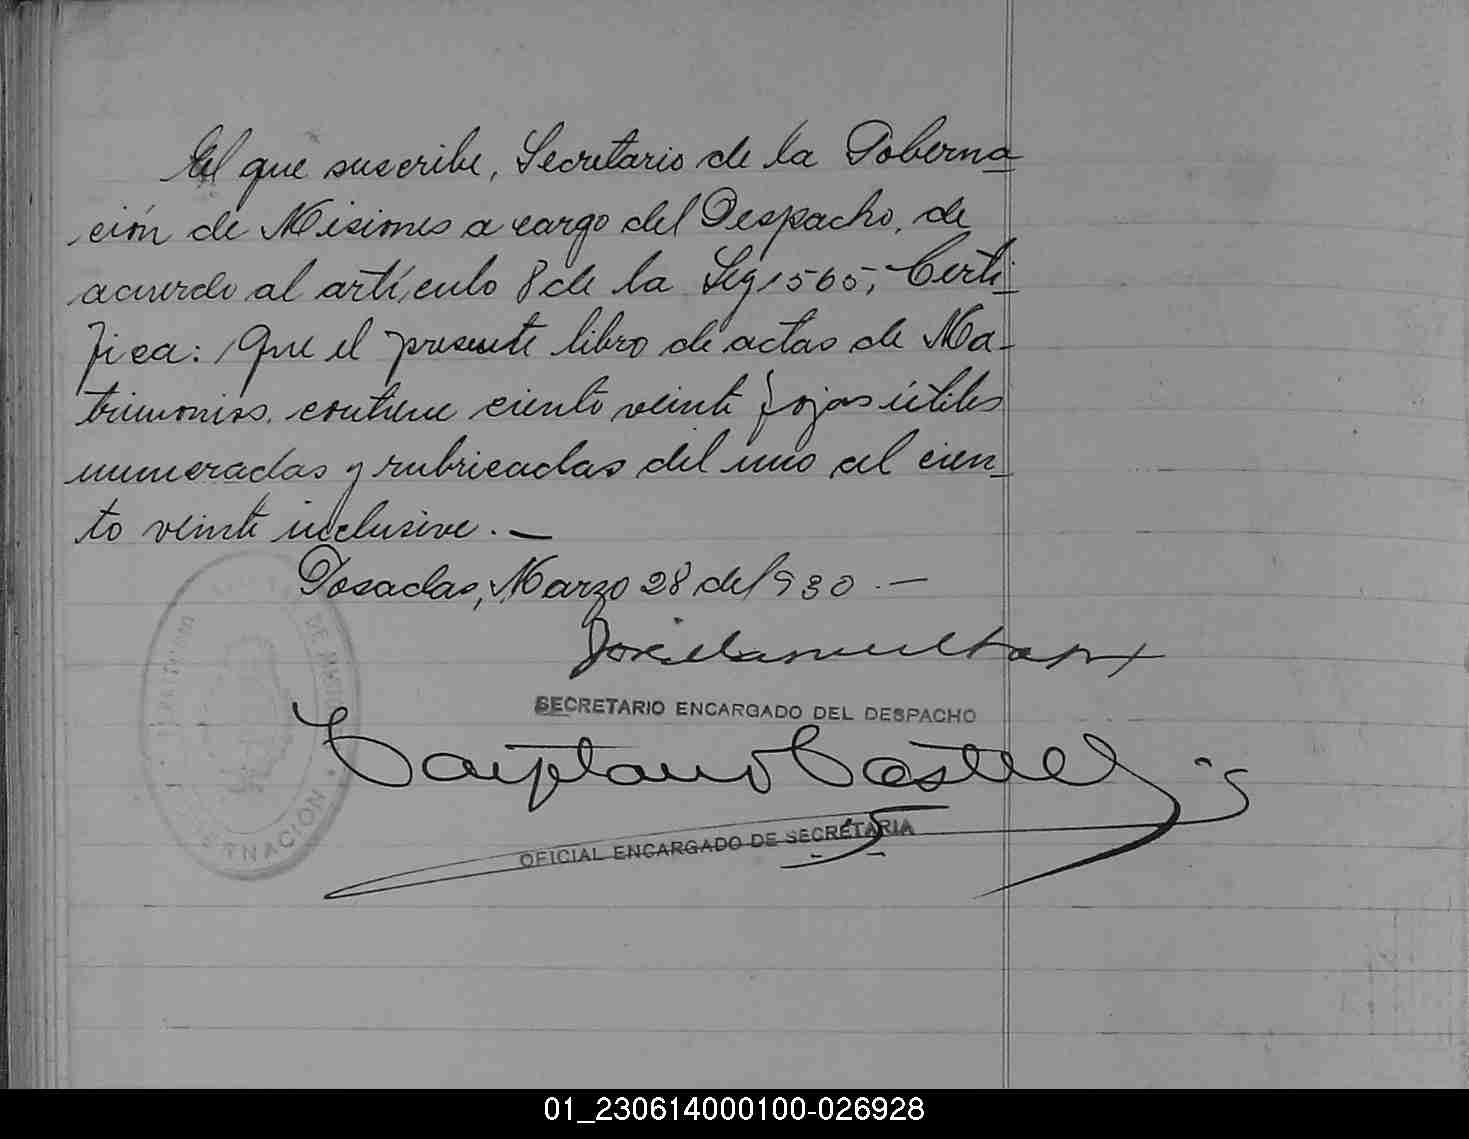 El que suscribe, Secretario de la Goberna-
ción de Misiones a cargo del Despacho, de
acuerdo al artículo 8 de la Ley 1565, Certi-
fica: Que el presente libro de actas de Ma-
trimonios, contiene ciento veinte fojas útiles
numeradas y rubricadas del uno al cien-
to veinte inclusive. —
Posadas, Marzo 28 de 1930. —
José Manuel
SECRETARIO ENCARGADO DEL DESPACHO
Cayetano Castelli
OFICIAL ENCARGADO DE SECRETARIA
DE MISIONES
01_230614000100-026928